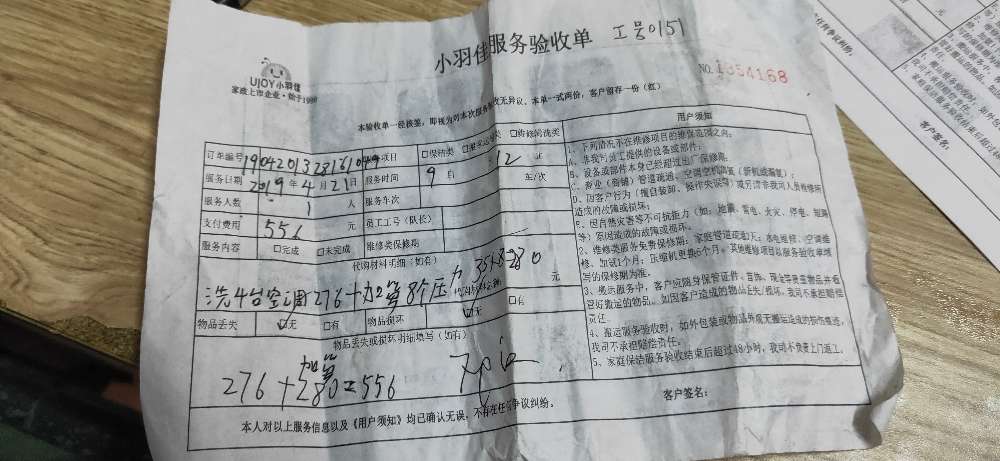 小羽佳服务验收单 工号0151
UJOY小羽佳
家政上市企业·始于1998
NO.1354168
本验收单一经核签，即视为对本次服务验收无异议。本单一式两份，客户留存一份（红）
订单编号 190420132816 项目 □保洁类 □维修清洗类
服务日期 2019年4月21日 服务时间 9 自 12
服务人数 1 人 服务车次 车/次
支付费用 556 元 员工工号（队长）
服务内容 □完成 □未完成 维修类保修期
代购材料明细（如有）
洗4台空调276+加氟8个压力 35×8=280
物品丢失 ☑无 □有 物品损坏 ☑无 □有
物品丢失或损坏明细填写（如有）
276+加氟280=556
本人对以上服务信息以及《用户须知》均已确认无误，不存在任何争议纠纷。
客户签名：
用户须知
1、下列情况不在维修项目的维保范围之内：
A、非我司员工提供的设备或部件；
B、设备或部件本身已经超过出厂保修期。
C、商业（商铺）管道疏通、空调空机加氟（新机或漏氟）；
D、因客户行为（擅自装卸、操作失误等）或另请非我司人员维修所
造成的故障或损坏；
E、因自然灾害等不可抗拒力（如：地震、雷电、火灾、停电、短路
等）原因造成的故障或损坏。
2、维修类服务免费保修期：家庭管道疏通7天；水电维修、空调维
修、加氟1个月；压缩机更换6个月。其他维修项目以服务验收单填
写的保修期为准。
3、搬运服务中，客户应随身保管证件、首饰、现金等贵重物品并看
管好搬运的物品，如因客户造成的物品丢失/损坏，我司不承担赔偿
责任。
4、搬运服务验收时，如外包装或物品外观无搬运造成的损伤痕迹，
我司不承担赔偿责任。
5、家庭保洁服务验收结束后超过48小时，我司不负责上门返工。
客户签名：